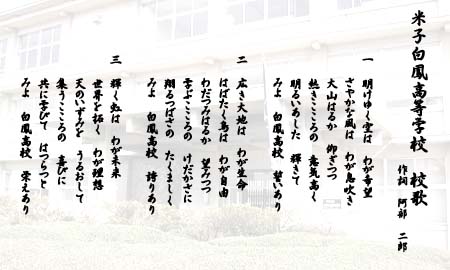 米子白鳳高等学校 校歌
作詞 阿部 二郎
一 明けゆく空は わが希望
さやかな風は わが息吹き
大山はるか 仰ぎつつ
熱きこころの 意気高く
明るいあした 輝きて
みよ 白鳳高校 誓いあり
二 広き大地は わが生命
はばたく鳥は わが自由
わだつみはるか 望みつつ
学ぶこころの けだかさに
翔るつばさの たくましく
みよ 白鳳高校 誇りあり
三 輝く虹は わが未来
世界を拓く わが理想
天のいずみを うるおして
集うこころの 喜びに
共に学びて はつらつと
みよ 白鳳高校 栄えあり